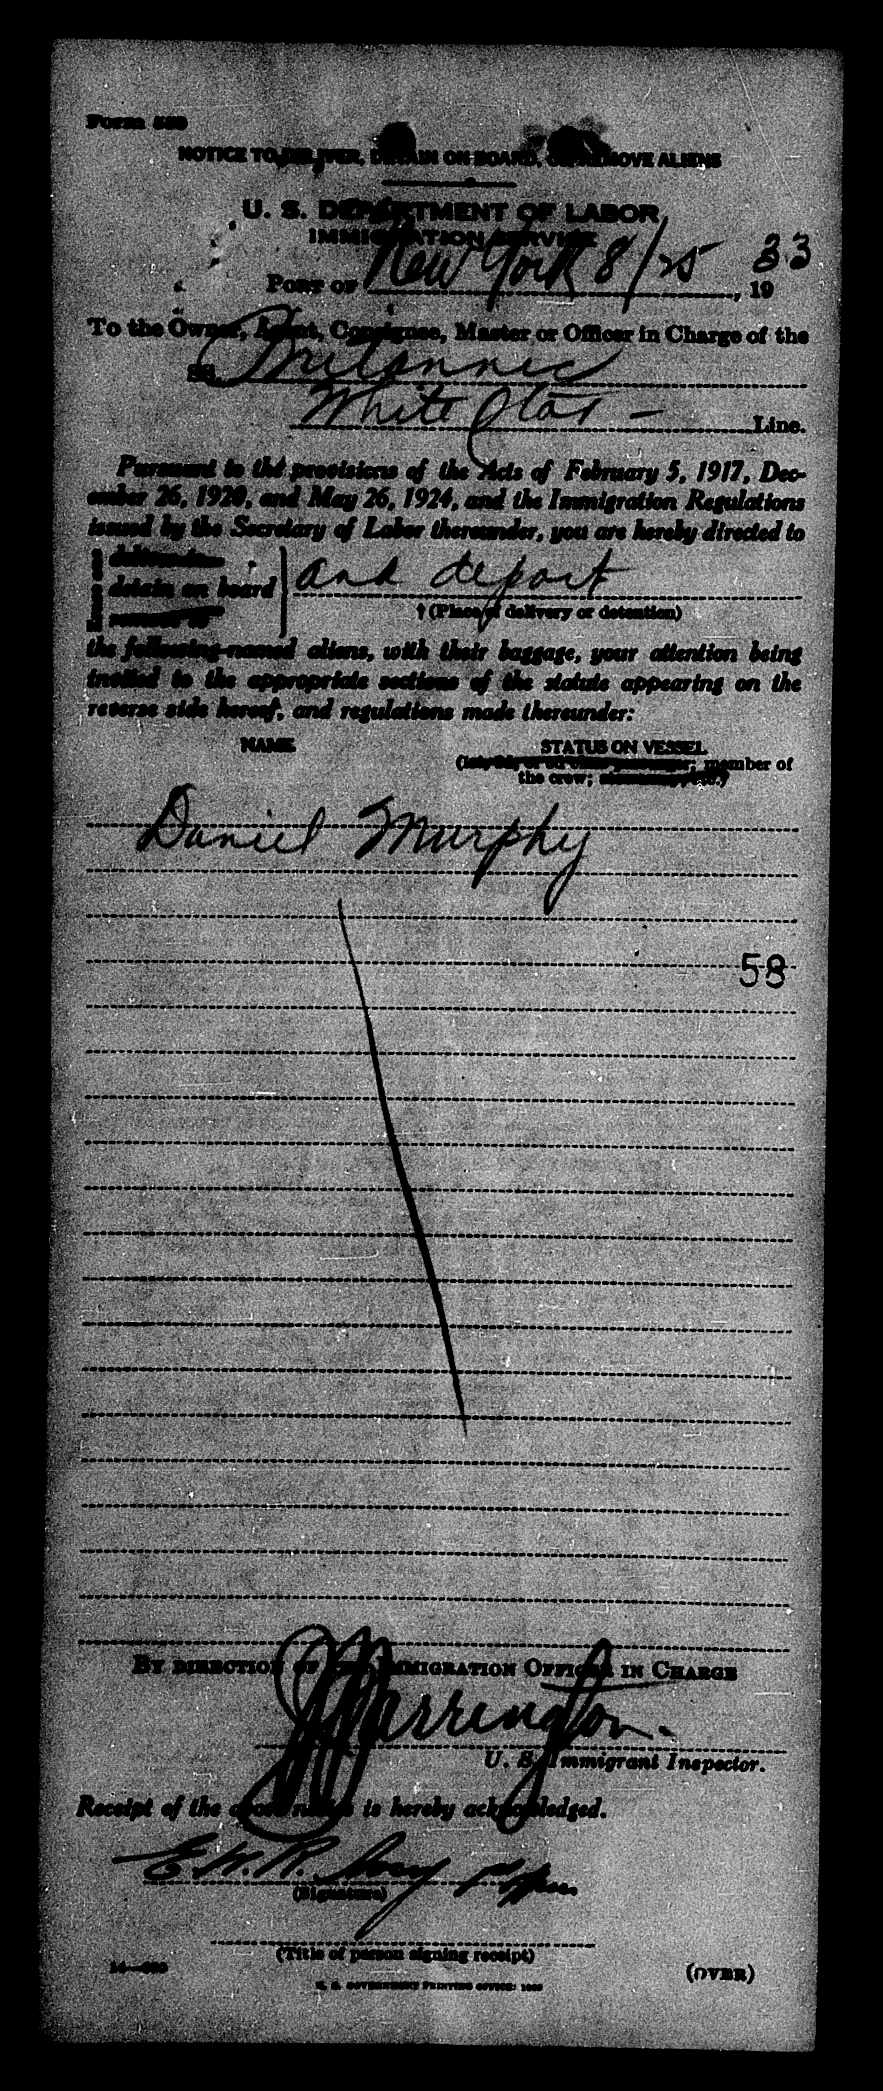 Form
NOTICE TO DELIVER, DETAIN ON BOARD, OR REMOVE ALIENS
U. S. DEPARTMENT OF LABOR
IMMIGRATION SERVICE
PORT OF New York 8/25, 1933
To the Owner, Agent, Consignee, Master or Officer in Charge of the
SS. Britannic
White Star - Line.
Pursuant to the provisions of the Acts of February 5, 1917, Dec-
ember 26, 1920, and May 26, 1924, and the Immigration Regulations
issued by the Secretary of Labor thereunder, you are hereby directed to
detain on board and deport
† (Place of delivery or detention)
the following-named aliens, with their baggage, your attention being
invited to the appropriate sections of the statute appearing on the
reverse side hereof, and regulations made thereunder:
NAME STATUS ON VESSEL
member of
the crew;
Daniel Murphy
58
BY DIRECTION OF THE IMMIGRATION OFFICER IN CHARGE
Warrington.
U. S. Immigrant Inspector.
Receipt of the above notice is hereby acknowledged.
(Signature)
(Title of person signing receipt)
U. S. GOVERNMENT PRINTING OFFICE:
(OVER)